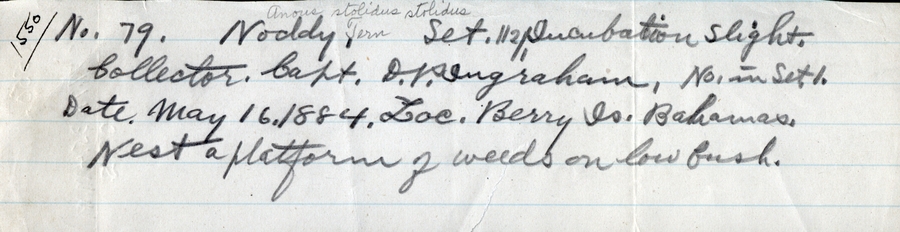 Anous stolidus stolidus
550 No. 79. Noddy Tern Set. 112/1 Incubation Slight.
Collector. Capt. D.P. Ingraham, No. in Set 1.
Date. May 16. 1884. Loc. Berry Is. Bahamas.
Nest a platform of weeds on low bush.